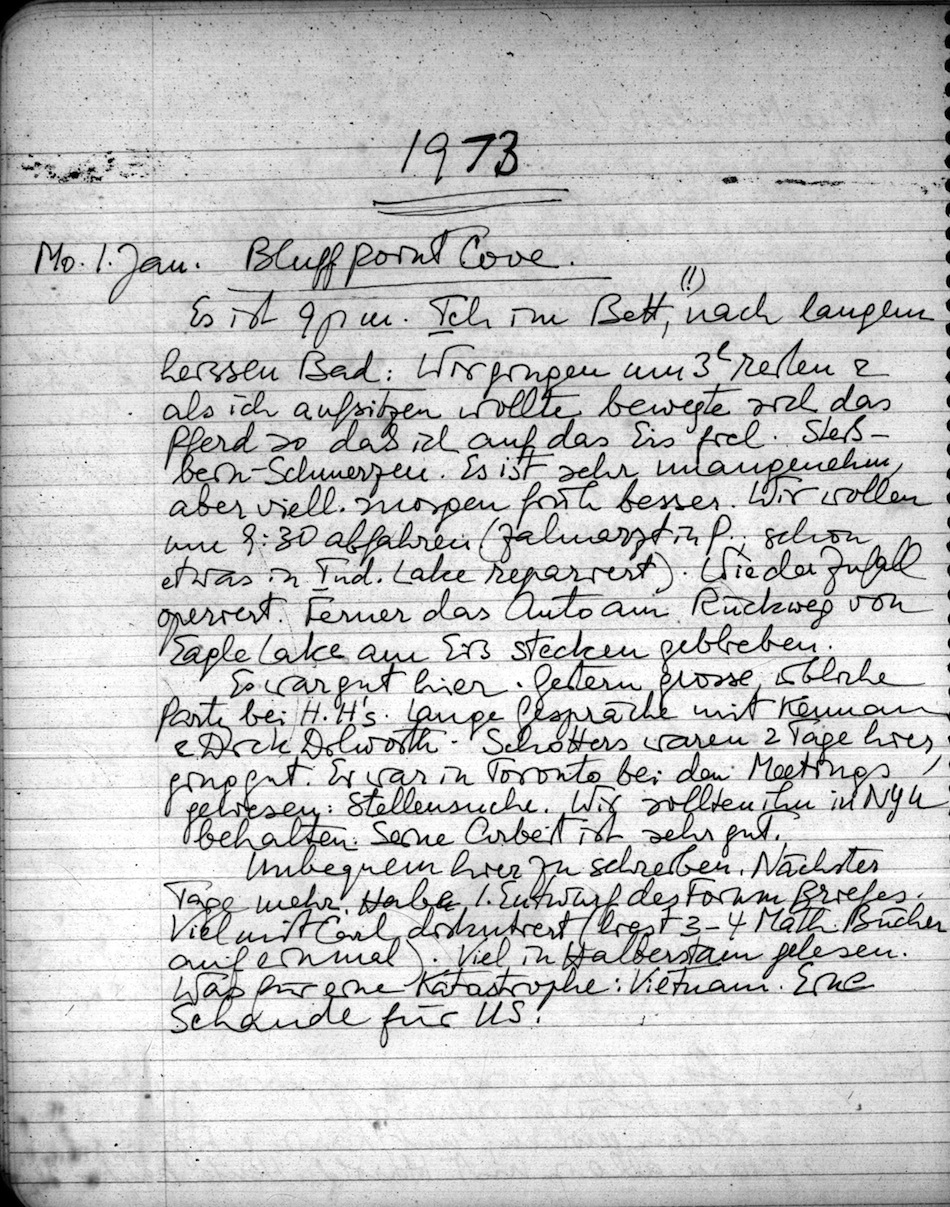 1973
Mo. 1. Jan. Bluff Point Cove.
(!)
Es ist 9 pm. Ich im Bett, nach langem
heissen Bad: Wir gingen um 3h reiten &
als ich aufsitzen wollte bewegte sich das
Pferd so daß ich auf das Eis fiel. Steiß-
bein-Schmerzen. Es ist sehr unangenehm,
aber viell. morgen früh besser. Wir wollen
um 9:30 abfahren (Zahnarzt in P.; schon
etwas in Ind. Lake repariert). Wie der Zufall
operiert. Ferner das Auto am Rückweg von
Eagle Lake am Eis stecken geblieben.
Es war gut hier. Gestern grosse, übliche
Party bei H. H's. Lange Gespräche mit Kennan
& Dick Dilworth. Schotters waren 2 Tage hier,
ging gut. Er war in Toronto bei den Meetings
gewesen: Stellensuche. Wir sollten ihn in NYU
behalten. Seine Arbeit ist sehr gut.
Unbequem hier zu schreiben. Nächster
Tage mehr. Habe 1. Entwurf des Forum Briefes.
Viel mit Carl diskutiert (liest 3-4 Math. Bücher
auf einmal). Viel in Halberstam gelesen.
Was für eine Katastrophe: Vietnam. Eine
Schande für US!